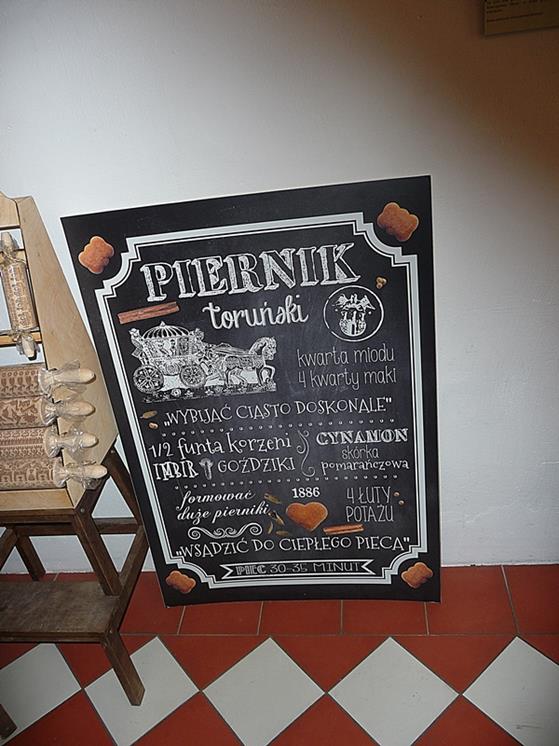 PIERNIK
toruński
kwarta miodu
4 kwarty mąki
„WYBIJAĆ CIASTO DOSKONALE"
1/2 funta korzeni
IMBIR GOŹDZIKI
CYNAMON
skórka
pomarańczowa
formować
duże pierniki
1886
4 ŁUTY
POTAŻU
„WSADZIĆ DO CIEPŁEGO PIECA"
PIEC 30-35 MINUT